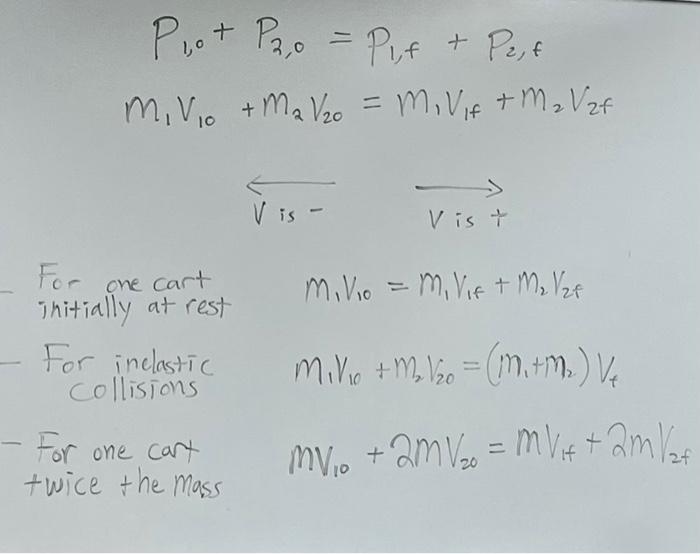 P₁,₀ + P₂,₀ = P₁,f + P₂,f
m₁V₁₀ + m₂V₂₀ = m₁V₁f + m₂V₂f
← →
V is - V is +
- For one cart initially at rest m₁V₁₀ = m₁V₁f + m₂V₂f
- For inelastic collisions m₁V₁₀ + m₂V₂₀ = (m₁+m₂) Vf
- For one cart twice the mass mV₁₀ + 2mV₂₀ = mV₁f + 2mV₂f